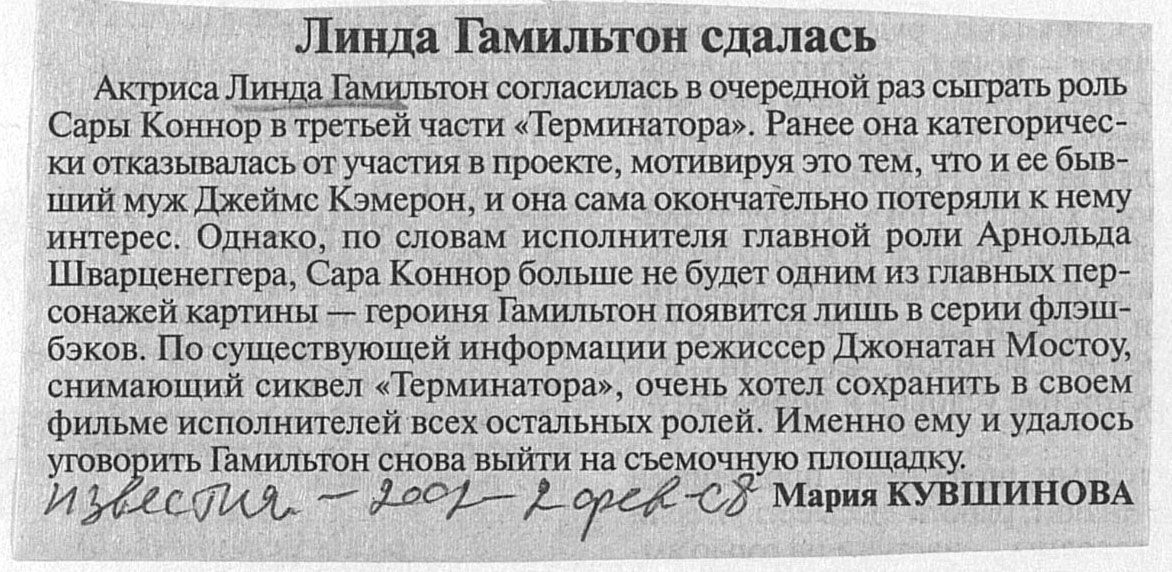 Линда Гамильтон сдалась
Актриса Линда Гамильтон согласилась в очередной раз сыграть роль
Сары Коннор в третьей части «Терминатора». Ранее она категоричес-
ки отказывалась от участия в проекте, мотивируя это тем, что и ее быв-
ший муж Джеймс Кэмерон, и она сама окончательно потеряли к нему
интерес. Однако, по словам исполнителя главной роли Арнольда
Шварценеггера, Сара Коннор больше не будет одним из главных пер-
сонажей картины — героиня Гамильтон появится лишь в серии флэш-
бэков. По существующей информации режиссер Джонатан Мостоу,
снимающий сиквел «Терминатора», очень хотел сохранить в своем
фильме исполнителей всех остальных ролей. Именно ему и удалось
уговорить Гамильтон снова выйти на съемочную площадку.
известия - 2002 - 2 фев - с8 Мария КУВШИНОВА